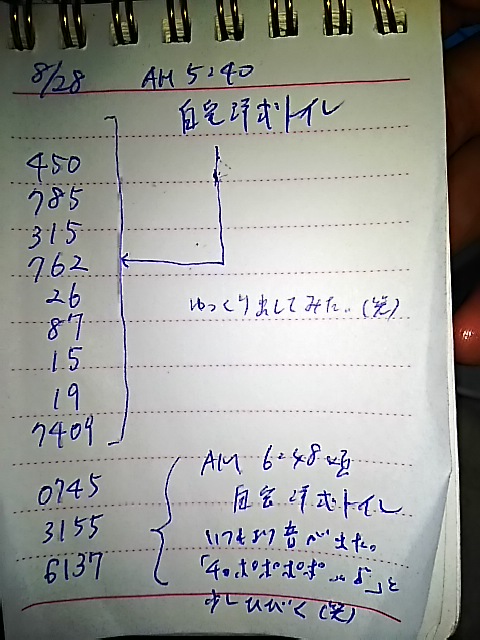 8/28 AM 5:40
自宅洋式トイレ
450
785
315
762
26
ゆっくり出してみた。(笑)
87
15
19
7409
AM 6:48頃
0745
自宅洋式トイレ
3155
いつもより音が出た。
6137
ポポポポ
少しひびく(笑)